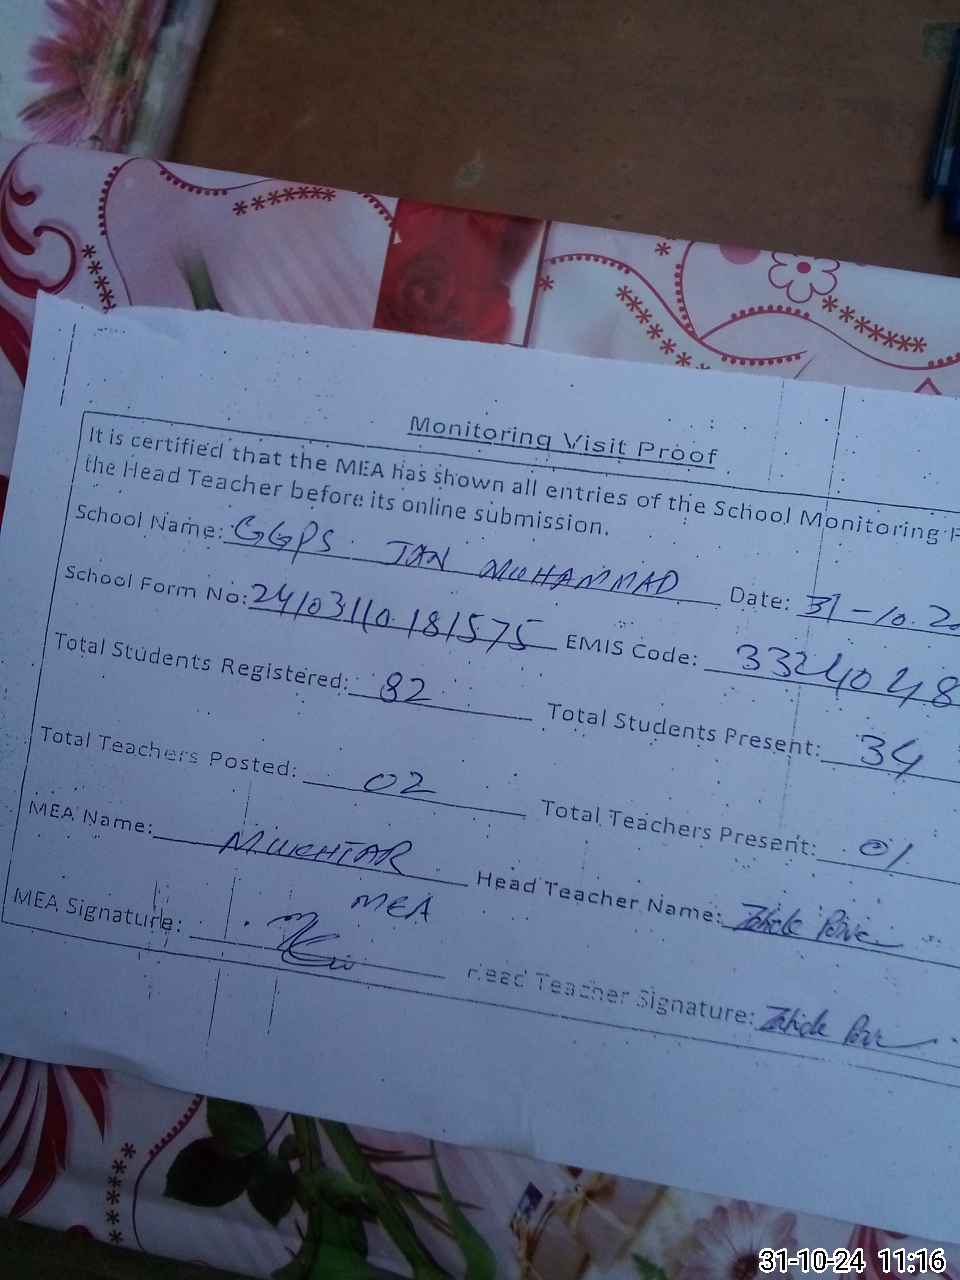 Monitoring Visit Proof
It is certified that the MEA has shown all entries of the School Monitoring F
the Head Teacher before its online submission.
School Name: GGPS JAN MUHAMMAD Date: 31-10.20
School Form No: 24103110181575 EMIS Code: 3324048
Total Students Registered: 82 Total Students Present: 34
Total Teachers Posted: 02 Total Teachers Present: 01
MEA Name: MUKHTAR Head Teacher Name:
MEA
MEA Signature: Head Teacher Signature:
31-10-24 11:16